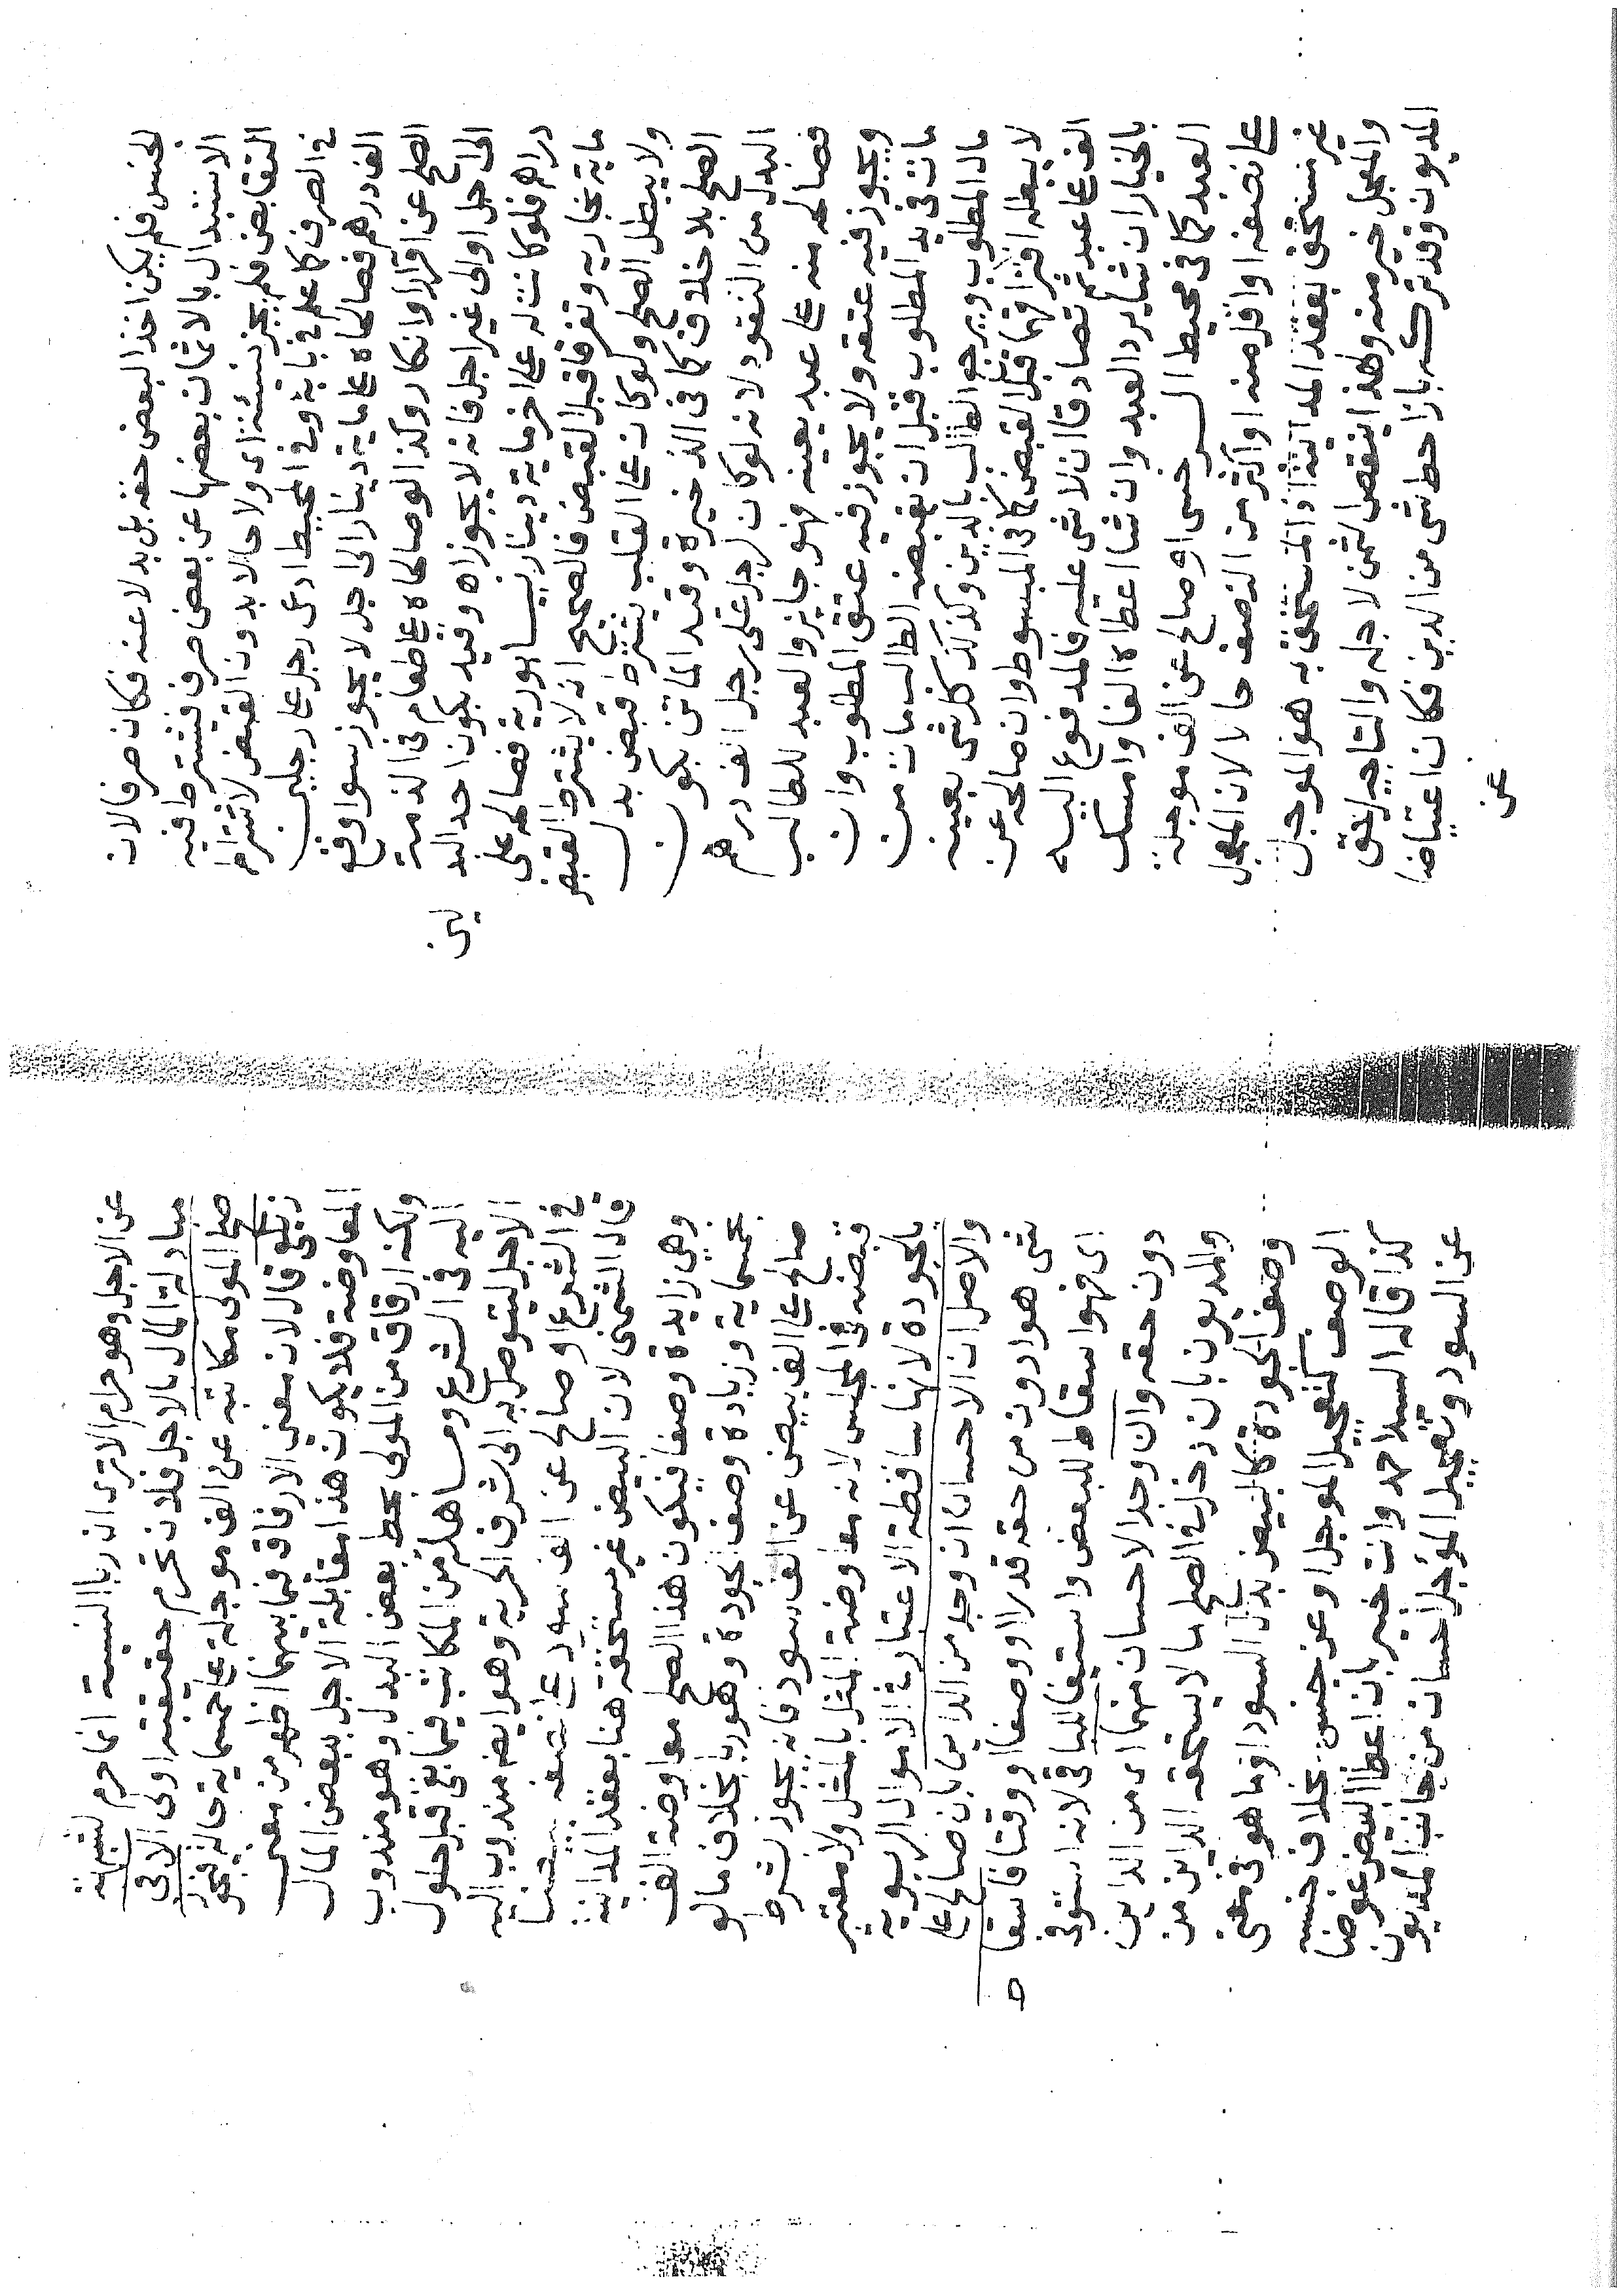 الجنس فلم يكن اخذ البعض حقه بل بدلا عنه فكان صرفا لان
الاستبدال بالاثمان بعضها عن بعض صرف فيشترط فيه
التقابض فلم يجز نسئة اى ولا حالا بدون القبض لاشتراطه
فى الصرف كما علم فى بابه وفى المحيط ادعى رجل على رجلين
الف درهم فصالحاه على ماية دينار الى اجل لا يجوز سوا وقع
الصلح عن اقرار او انكار وكذا لو صالحاه على طعام فى الذمة
الى اجل او الى غير اجل فانه لا يجوز اه وقيد بكون احد البد
لين
دراهم فلو كانت له على اخر ماية دينار نيسابورية فصالحه على
ماية بخارية وتفرقا قبل القبض فالصحيح انه لا يشترط القبض
ولا يبطل الصلح ولو كان على القلب يشترط قبض بدل
الصلح بلا خلاف كما فى الذخيرة وقيد الماتن بكون
البدل من النقود لانه لو كان لرجل على رجل الف درهم
فصالحه منه على عبد بعينه فهو جايز والعبد للطالب
ويجوز فيه عتقه ولا يجوز فيه عتق المطلوب وان
مات فى يد المطلوب قبل ان يقبضه الطالب مات من
مال المطلوب ويرجع الطالب بالدين وكذلك كل شى بعينه
لا يبطله افتراقهما قبل القبض كما فى المبسوط وان صالحه عن
الف على عبد ثم تصادقا ان لا شى عليه فالمدفوع اليه
بالخيار ان شا يرد العبد وان شا اعطاه الفا وامسك
العبد كما فى محيط السرخسى او صالح عن الف موجلة
على نصفه او اقل منه او اكثر من النصف حالا لان المعجل
غير مستحق بعقد المداينة اذ المستحق به هو الموجل
والمعجل خير منه ولهذا ينقص الثمن لاجله والتاجيل حق
المديون وقد تركه بازا حط شى من الدين فكان اعتياضا
عن
عن الاجل وهو حرام الا ترى ان ربا النسية انما حرم لشبهة
مبادلة المال بالاجل فلان تحرم حقيقته اولى الا فى
صلح المولى مكاتبه عن الف موجلة على خمسماية حالة فيجوز
زيلعى قال لان معنى الارفاق فيما بينهما اظهر من معنى
المعاوضة فلا يكون هذا مقابلة الاجل ببعض المال
ولكنه ارفاق من المولى بحط بعض البدل وهو مندوب
اليه فى الشرع ومساهلة من المكاتب فيما بقى قبل حلول
الاجل ليتوصل به الى شرف الحرية وهو ايضا مندوب اليه
فى الشرع او صالح عن الف سود على نصفه بيضا
قال الشمنى لان البيض غير مستحقة هنا بعقد المداينة
وهى زايدة وصفا فيكون هذا الصلح معاوضة الف
بخمسماية وزيادة وصف الجودة وهو ربا بخلاف ما لو
صالح على الف بيض عن الف سود فانه يجوز بشرط
قبضه فى المجلس لانه معاوضة المثل بالمثل ولا معتبر
بالجودة لانها ساقطة الاعتبار فى الاموال الربوية
والاصل ان الاحسان ان وجد من الداين بان صالح على
شى هو ادون من حقه قدرا او وصفا او وقتا فاسقاط
اى فهو اسقاط للبعض واستيفا للباقى لانه استوفى
دون حقه وان وجد الاحسان منهما اى من الداين
والمديون بان دخل فى الصلح ما لا يستحقه الداين من
وصف الجودة كالبيض بدل السود او ما هو فى معنى
الوصف كتعجيل الموجل او عن جنس بخلاف جنسه
كذا قاله السيد احمد وانت خبير بان اعطا البيض عوضا
عن السود وتعجيل المؤجل احسان من جانب المديون